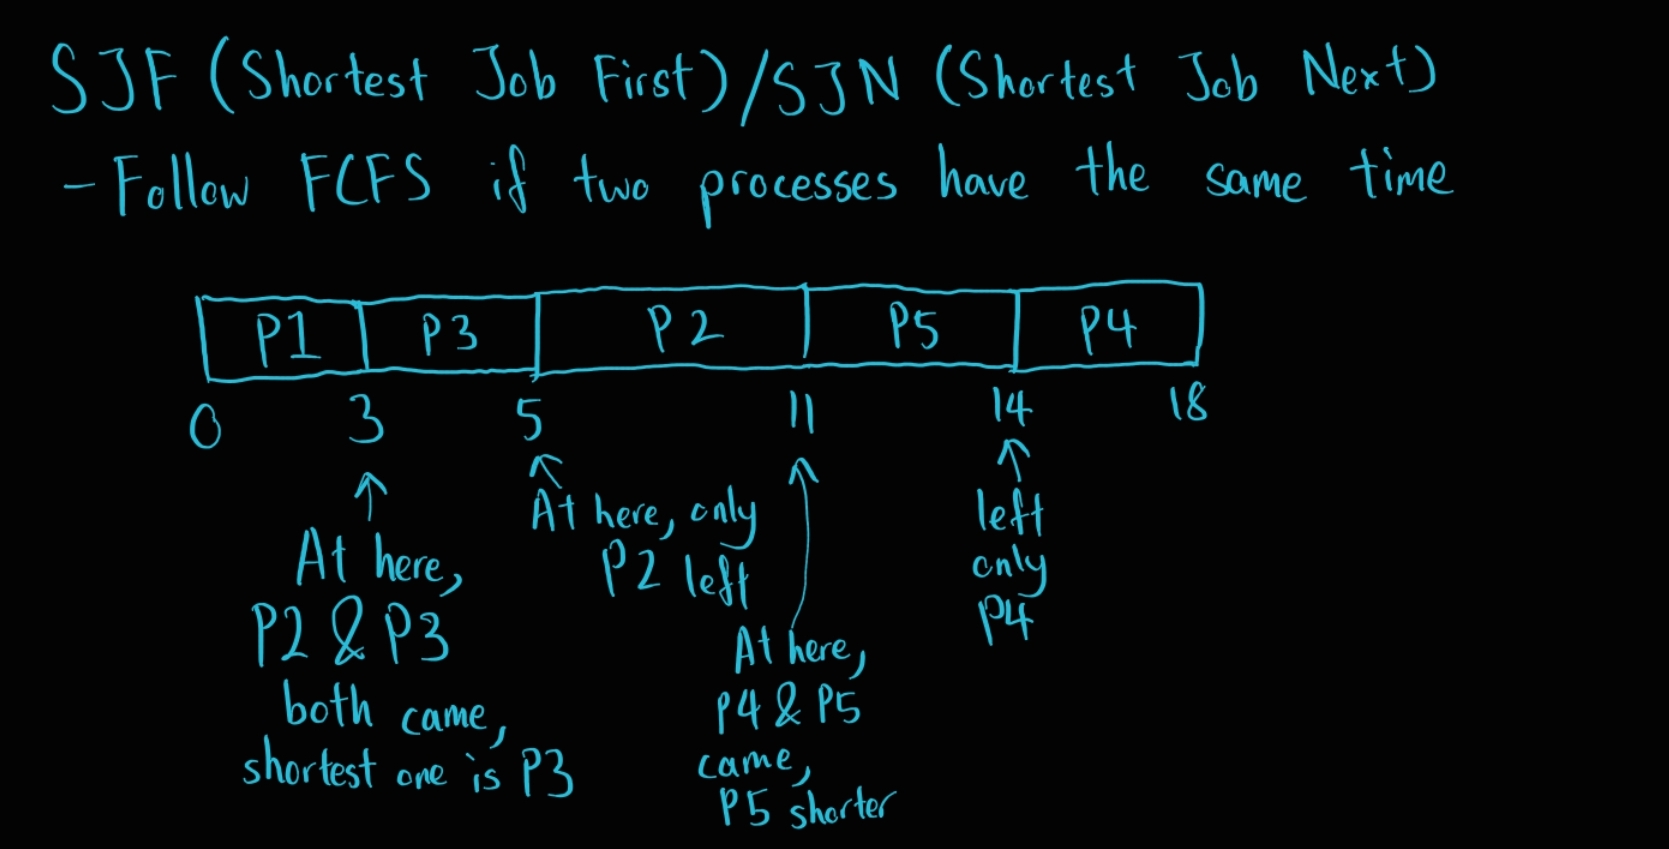 SJF (Shortest Job First)/SJN (Shortest Job Next)
- Follow FCFS if two processes have the same time
P1 P3 P2 P5 P4
0 3 5 11 14 18
At here,
P2 & P3
both came,
shortest one is P3
At here, only
P2 left
At here,
P4 & P5
came,
P5 shorter
left
only
P4